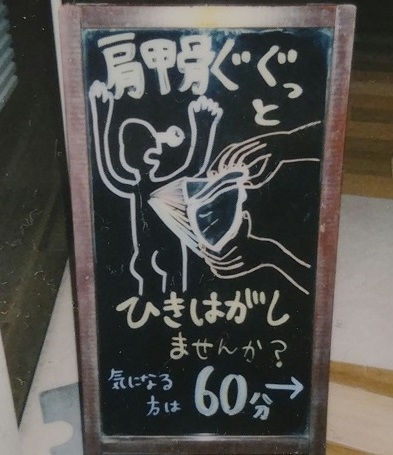 肩甲骨ぐぐっと
ひきはがし
ませんか?
気になる
方は 60分→